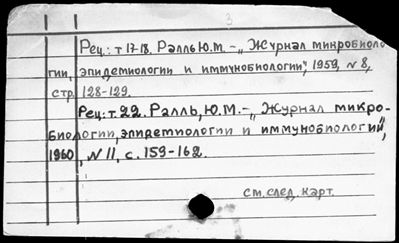 3
Рец.: т 17-18. Ралль Ю.М. -„Журнал микробиоло
гии, эпидемиологии и иммунобиологии", 1959, №8,
стр. 128-129.
Рец.: т. 22. Ралль, Ю.М. -„Журнал микро-
биологии, эпидемиологии и иммунобиологии",
1960, №11, с. 159-162.
см. след. карт.